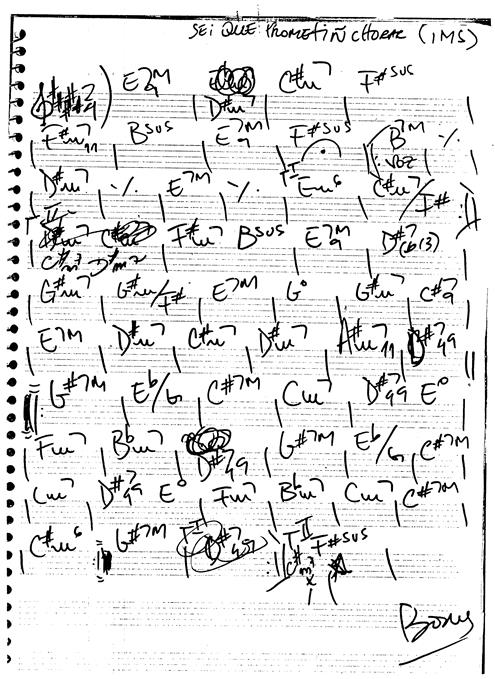 SEI QUE PROMETI Ñ CHORAR (IMS)
E7M 9 D#m7 C#m7 F#sus
F#m7 11 Bsus E7M 9 F#sus B7M ٪
VOZ
D#m7 ٪ E7M ٪ Em6 C#m7/F#
I
II
F#m7 Bsus E7M 9 D#7(b13)
C#m7 D#m7
G#m7 G#m7/F# E7M G° G#m7 C#7 9
E7M D#m7 C#m7 D#m7 A#m7 11 D#7 49
G#7M Eb/G C#7M Cm7 D#7 49 E°
Fm7 Bbm7 D#7 49 G#7M Eb/G C#7M
Cm7 D#7 49 E° Fm7 Bbm7 Cm7 C#7M
C#m6 G#7M I II F#sus
C#m7